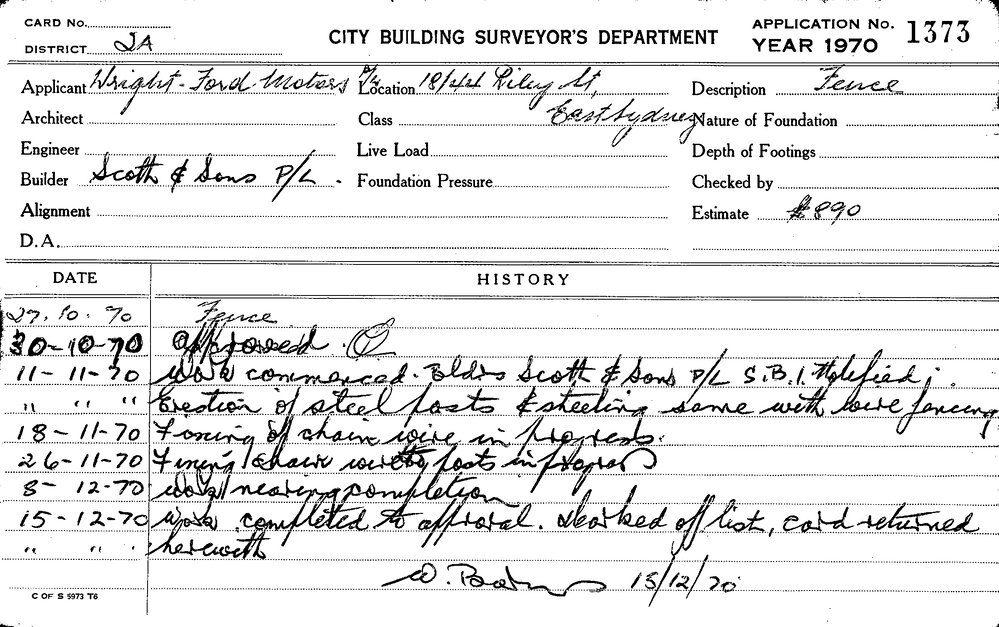 CARD No.
DISTRICT 2A
CITY BUILDING SURVEYOR'S DEPARTMENT
APPLICATION No. 1373
YEAR 1970
Applicant Wright-Ford Motors P/L
Location 18/44 Riley St,
Description Fence
Architect
Class East Sydney
Nature of Foundation
Engineer
Live Load
Depth of Footings
Builder Scoth & Sons P/L.
Foundation Pressure
Checked by
Alignment
Estimate $890
D.A.
DATE HISTORY
27.10.70 Fence
30-10-70 Approved.
11-11-70 Work commenced. Bldrs Scoth & Sons P/L S.B.I. Notified.
" " " Erection of steel posts & same with wire fencing
18-11-70 Fixing of chain wire in progress.
26-11-70 Fixing chain wire to posts in progress
8-12-70 Work nearing completion
15-12-70 Work completed to approval. Marked off list, card returned
" " " herewith
W. 15/12/70
C OF S 5973 T6